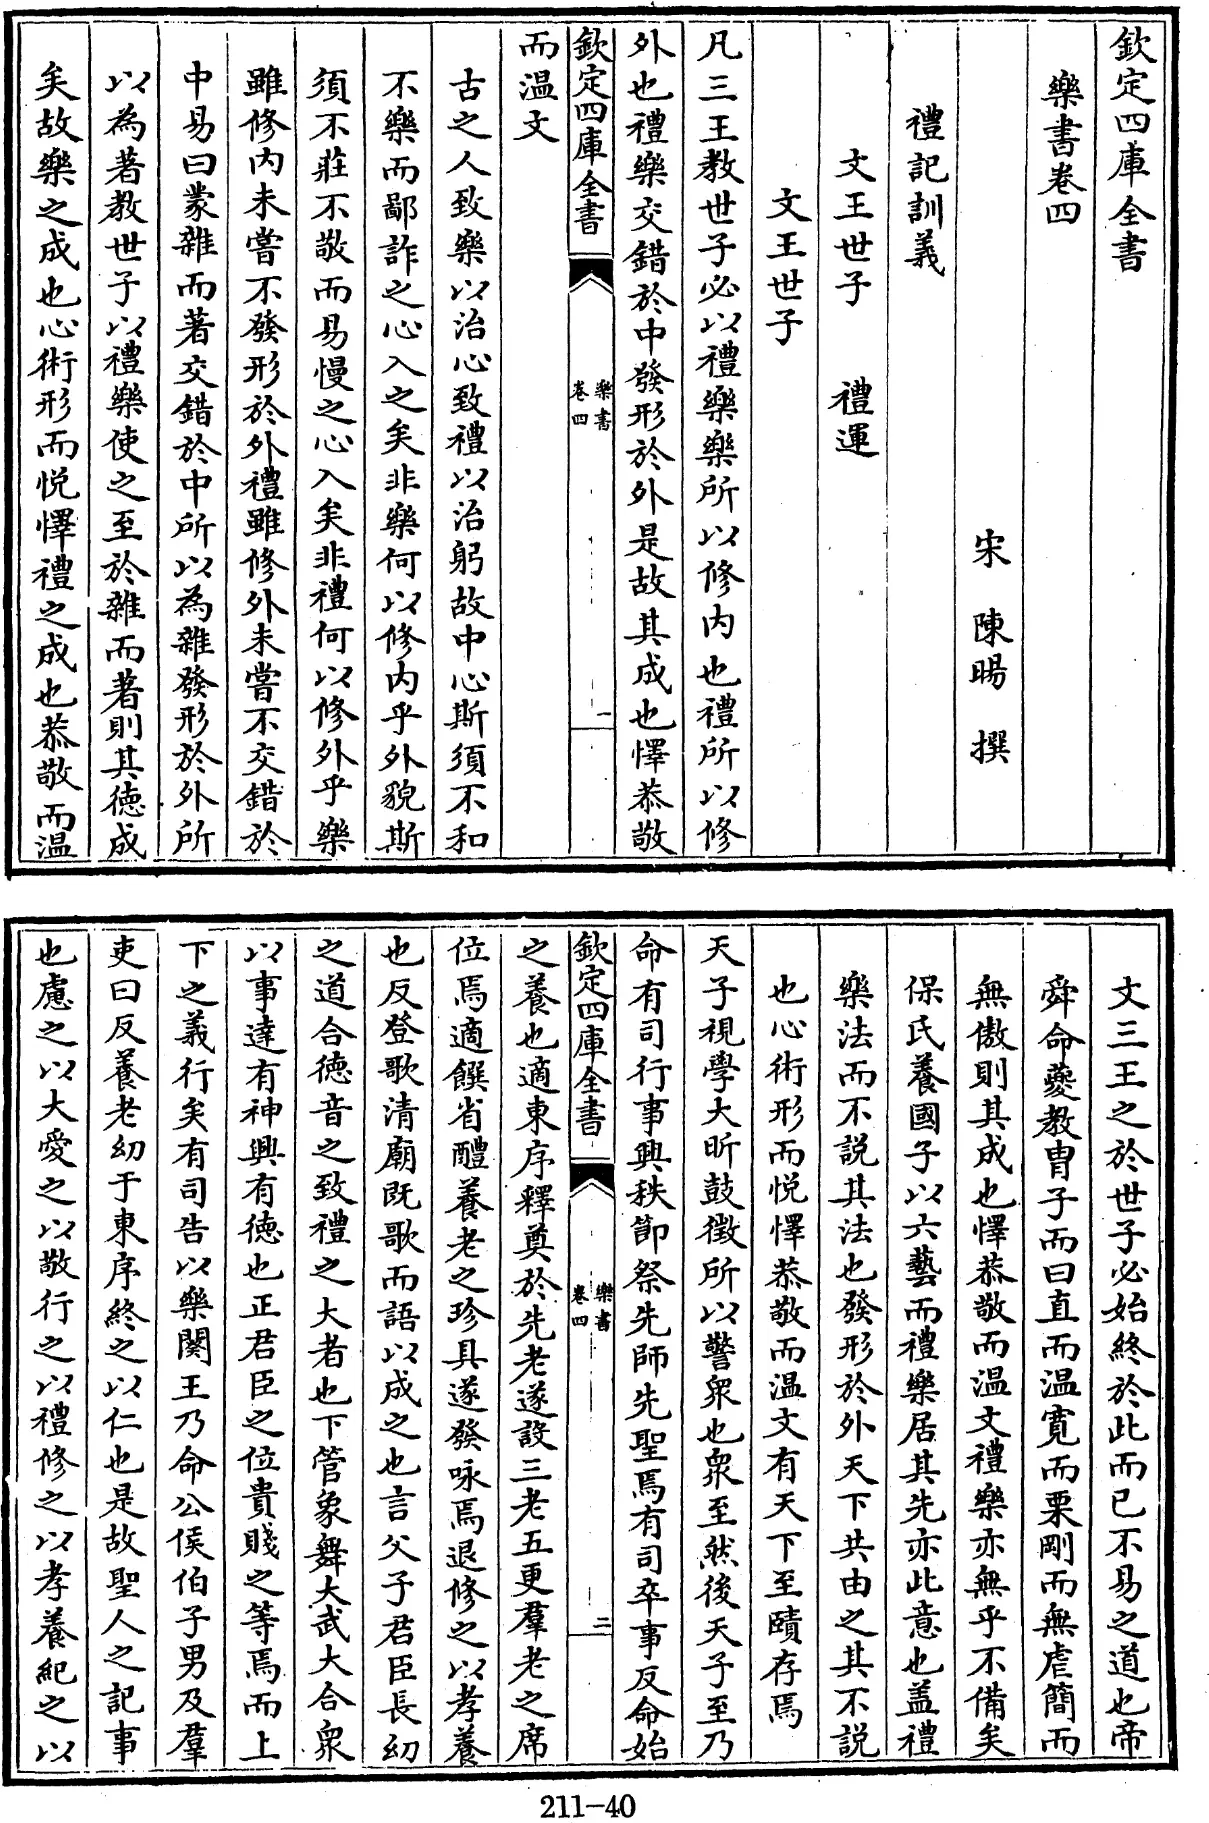 欽定四庫全書
樂書卷四
宋 陳暘 撰
禮記訓義
文王世子 禮運
文王世子
凡三王教世子必以禮樂樂所以修内也禮所以修
外也禮樂交錯於中發形於外是故其成也懌恭敬
欽定四庫全書
樂書
卷四
一
而温文
古之人致樂以治心致禮以治躬故中心斯須不和
不樂而鄙詐之心入之矣非樂何以修内乎外貌斯
須不莊不敬而易慢之心入矣非禮何以修外乎樂
雖修内未嘗不發形於外禮雖修外未嘗不交錯於
中易曰蒙雜而著交錯於中所以為雜發形於外所
以為著教世子以禮樂使之至於雜而著則其德成
矣故樂之成也心術形而悦懌禮之成也恭敬而温
文三王之於世子必始終於此而已不易之道也帝
舜命夔教胄子而曰直而温寛而栗剛而無虐簡而
無傲則其成也懌恭敬而温文禮樂亦無乎不備矣
保氏養國子以六藝而禮樂居其先亦此意也蓋禮
樂法而不説其法也發形於外天下共由之其不説
也心術形而悦懌恭敬而温文有天下至賾存焉
天子視學大昕鼓徴所以警衆也衆至然後天子至乃
命有司行事興秩節祭先師先聖焉有司卒事反命始
欽定四庫全書
樂書
卷四
二
之養也適東序釋奠於先老遂設三老五更羣老之席
位焉適饌省醴養老之珍具遂發咏焉退修之以孝養
也反登歌清廟既歌而語以成之也言父子君臣長幼
之道合德音之致禮之大者也下管象舞大武大合衆
以事達有神興有德也正君臣之位貴賤之等焉而上
下之義行矣有司告以樂闋王乃命公侯伯子男及羣
吏曰反養老幼于東序終之以仁也是故聖人之記事
也慮之以大愛之以敬行之以禮修之以孝養紀之以
211-40